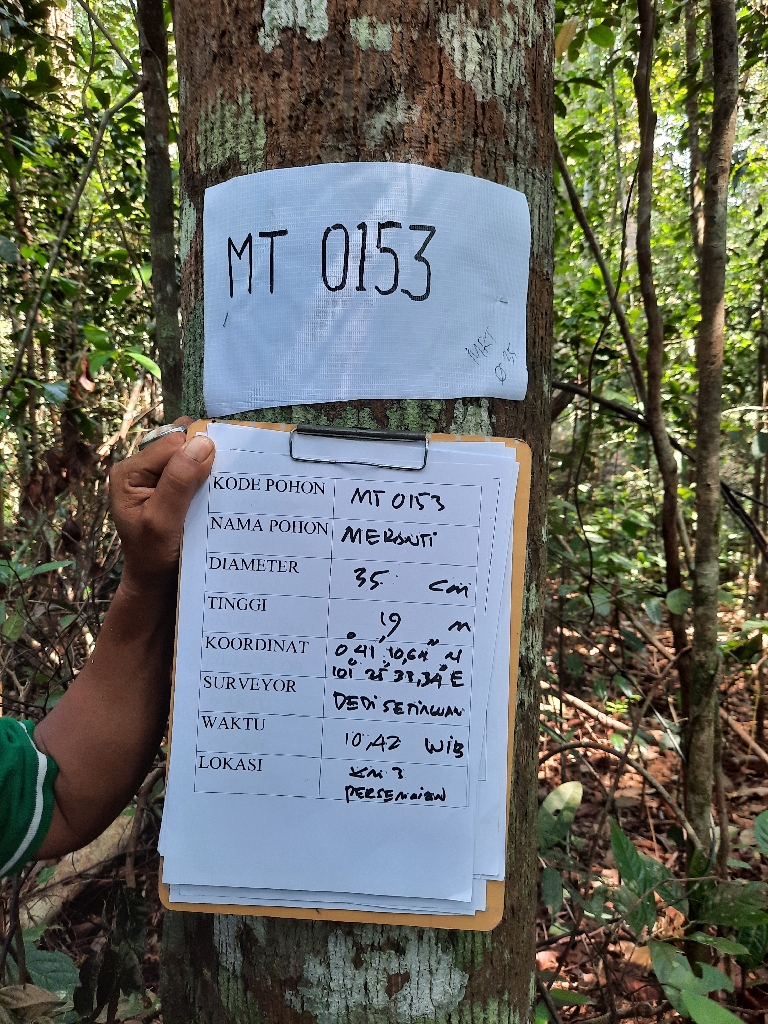 MT 0153
MRT
Ø 35
KODE POHON MT 0153
NAMA POHON MERANTI
DIAMETER 35 cm
TINGGI 19 m
KOORDINAT 0° 41' 10,64" N
101° 25' 33,34" E
SURVEYOR DEDI SETIAWAN
WAKTU 10:42 WIB
LOKASI KM 3
PERSEMAIAN